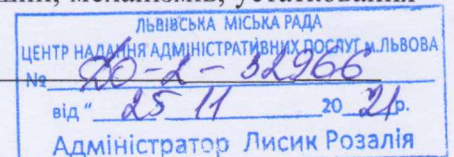 механізмів, устатковання
ЛЬВІВСЬКА МІСЬКА РАДА
ЦЕНТР НАДАННЯ АДМІНІСТРАТИВНИХ ПОСЛУГ м.ЛЬВОВА
№ 20-2-32966
від "25 11 2021р.
Адміністратор Лисик Розалія